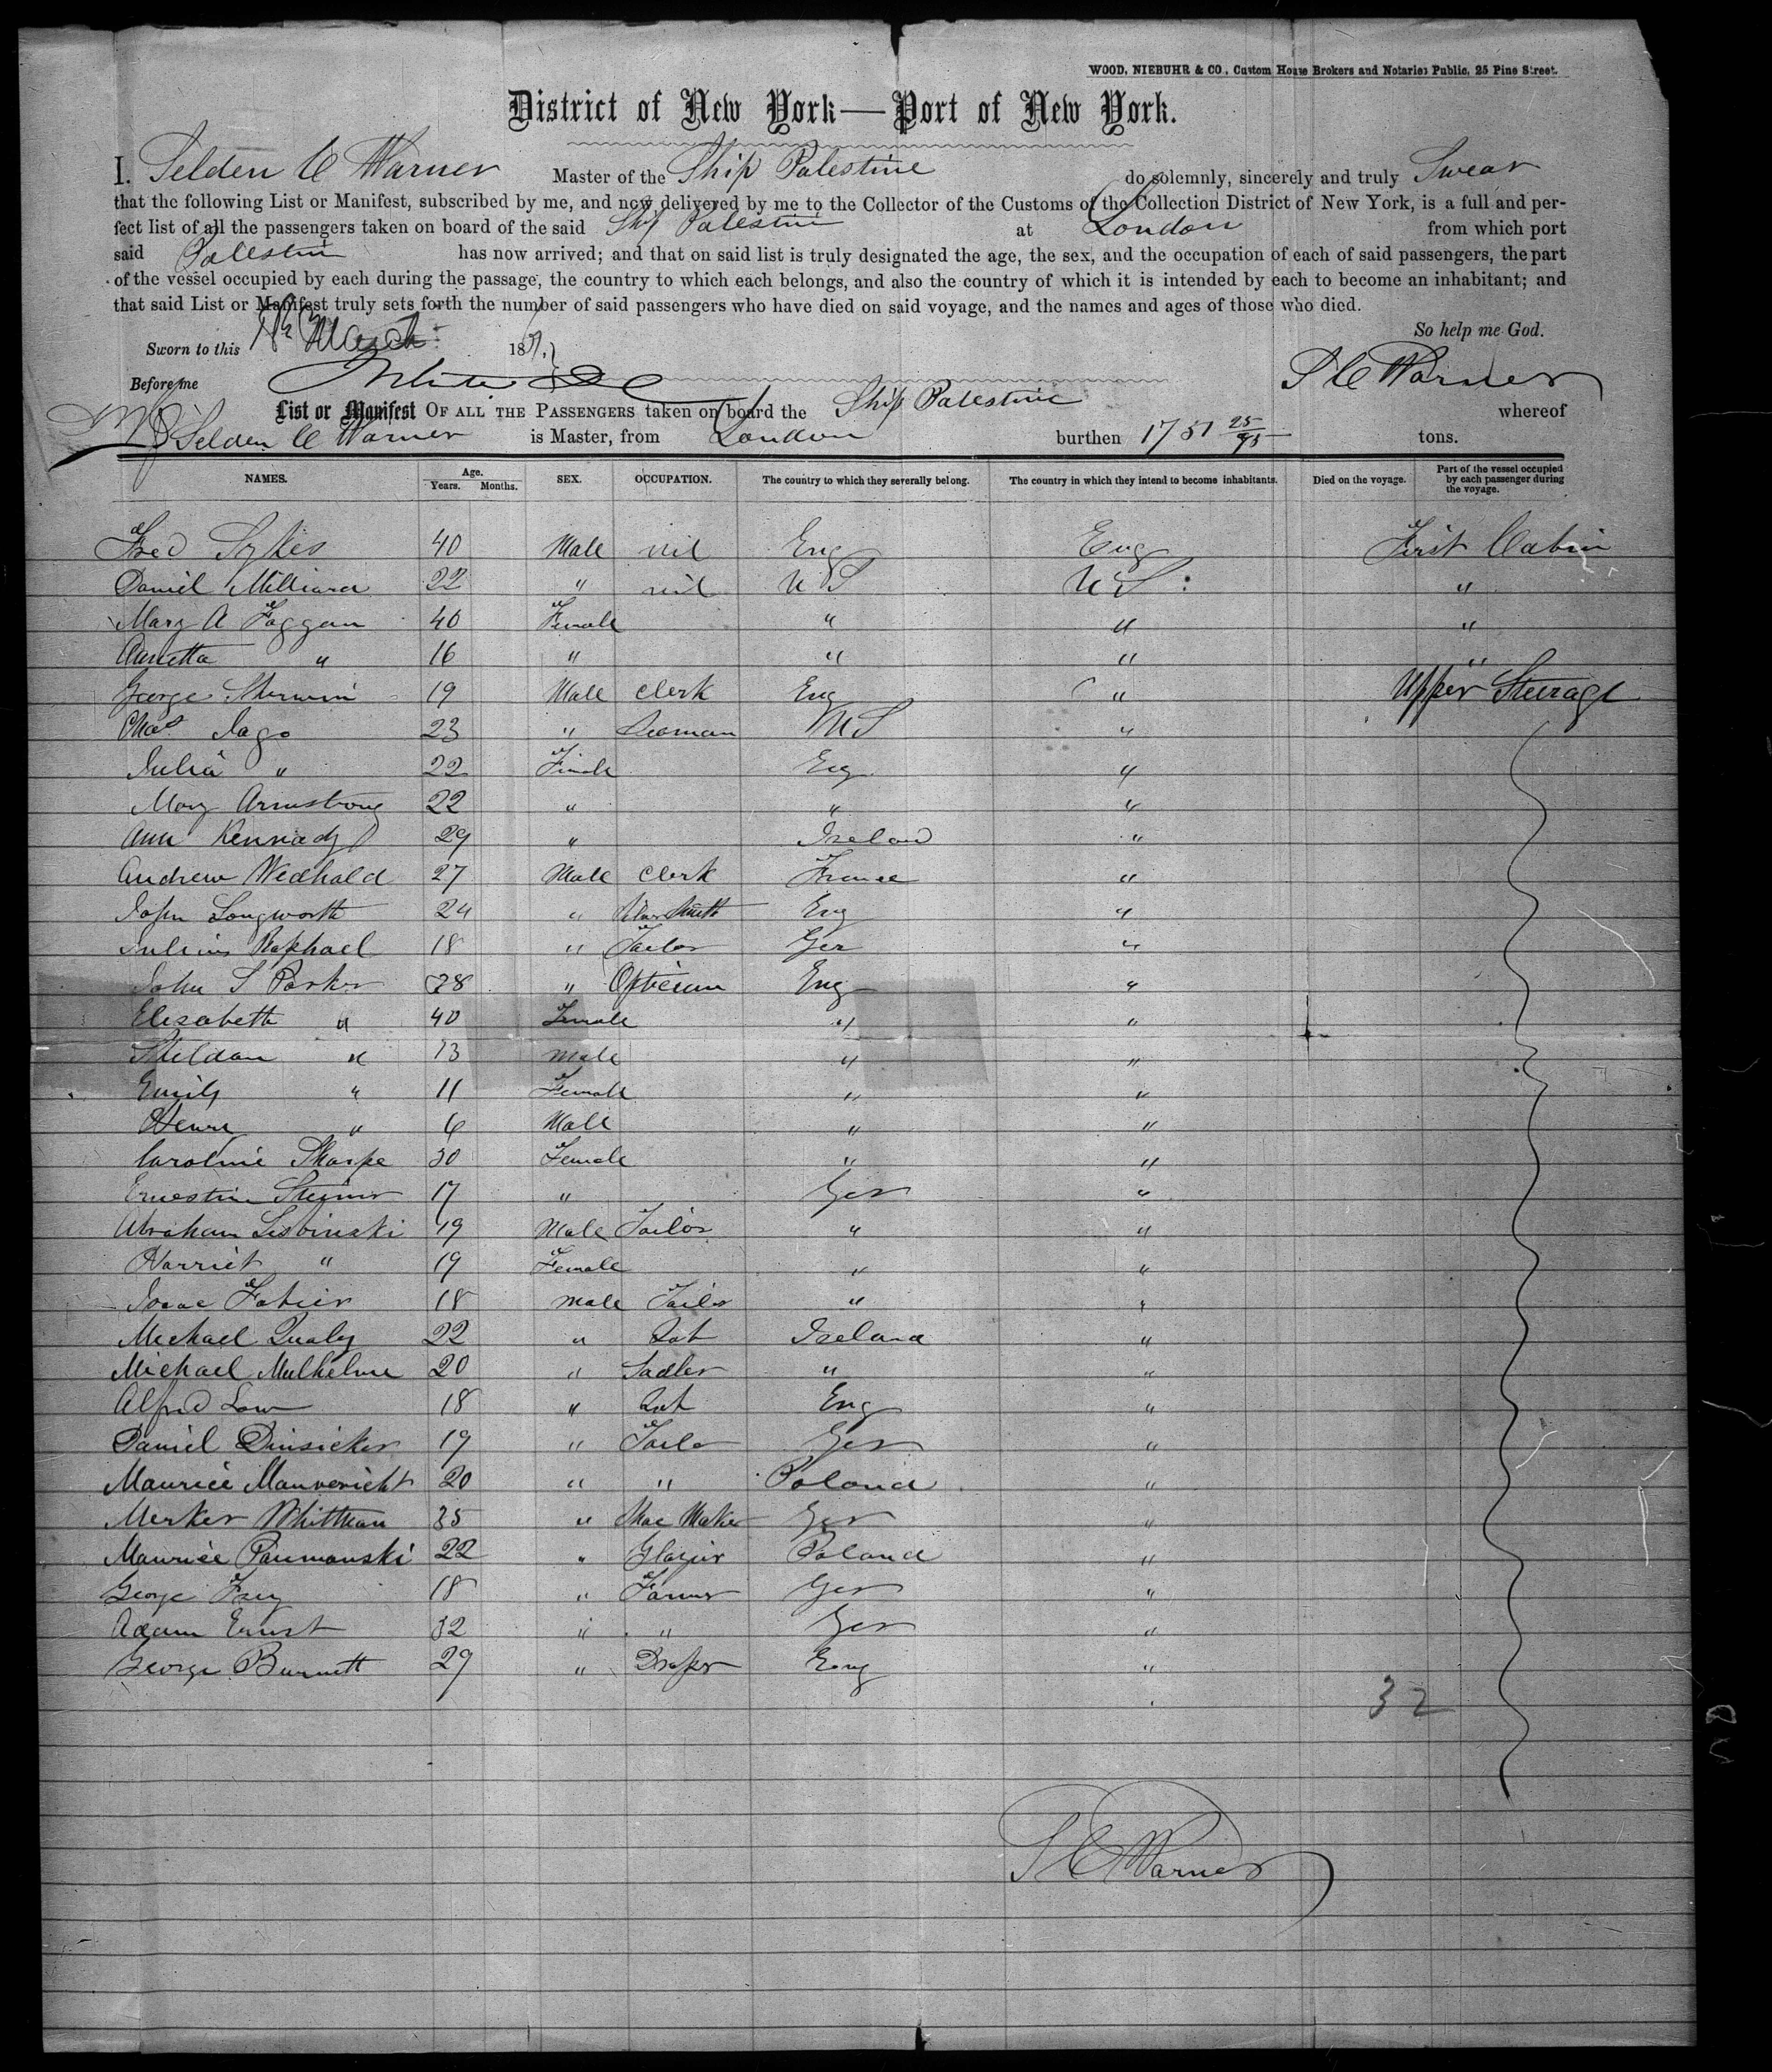 WOOD, NIEBUHR & CO., Custom House Brokers and Notaries Public, 25 Pine Street.
District of New York—Port of New York.
I. Selden C Warner Master of the Ship Palestine do solemnly, sincerely and truly Swear
that the following List or Manifest, subscribed by me, and now delivered by me to the Collector of the Customs of the Collection District of New York, is a full and per-
fect list of all the passengers taken on board of the said Ship Palestine at London from which port
said Palestin has now arrived; and that on said list is truly designated the age, the sex, and the occupation of each of said passengers, the part
of the vessel occupied by each during the passage, the country to which each belongs, and also the country of which it is intended by each to become an inhabitant; and
that said List or Manifest truly sets forth the number of said passengers who have died on said voyage, and the names and ages of those who died.
So help me God.
Sworn to this March 18
Before me S C Warner
List or Manifest OF ALL THE PASSENGERS taken on board the Ship Palestine whereof
Selden C Warner is Master, from London burthen 1751 25/95 tons.
NAMES. Age. Years. Months. SEX. OCCUPATION. The country to which they severally belong. The country in which they intend to become inhabitants. Died on the voyage. Part of the vessel occupied by each passenger during the voyage.
Fred Sykes 40 Male nil Eng Eng First Cabin
Daniel Milliard 22 " nil U S U S : "
Mary A Foggan 40 Female " " "
Annetta " 16 " " " "
George Sherwin 19 Male Clerk Eng " Upper Steerage
Chas Jago 23 " Seaman U S "
Julia " 22 Female Eng "
Mary Armstrong 22 " " "
Ann Kennady 29 " Ireland "
Andrew Wedhald 27 Male Clerk France "
John Longworth 24 " Silversmith Eng "
Julius Raphael 18 " Tailor Ger "
John S Parker 38 " Optician Eng "
Elizabeth " 40 Female " "
Sheldan " 13 male " "
Emily " 11 Female " "
Henry " 6 Male " "
Caroline Sharpe 30 Female " "
Ernestine Steiner 17 " Ger "
Abraham Lisvinski 19 Male Tailor " "
Harriet " 19 Female " "
Isaac Fabier 18 male Tailor " "
Michael Qualy 22 " Lab Ireland "
Michael Mulhelme 20 " Sadler " "
Alfred Law 18 " Lab Eng "
Daniel Dinsicker 19 " Tailo Ger "
Maurice Manvericht 20 " " Poland "
Merker Whittman 35 " Shoe Maker Ger "
Maurice Paumanski 22 " Glazier Poland "
George Frey 18 " Farmer Ger "
Adam Ernst 32 " " Ger "
George Burnett 29 " Draper Eng "
32
S C Warner